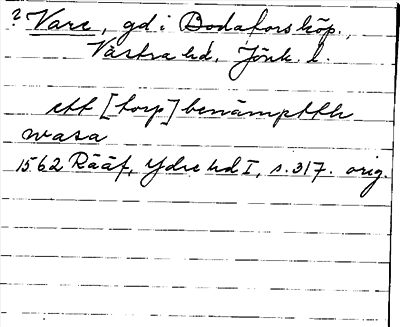 ? Vare, gd i Bodafors köp.,
Västra hd, Jönk. l.
ett [torp] benämptth
wasa
1562 Rääf, Ydre hd I, s. 317. orig.